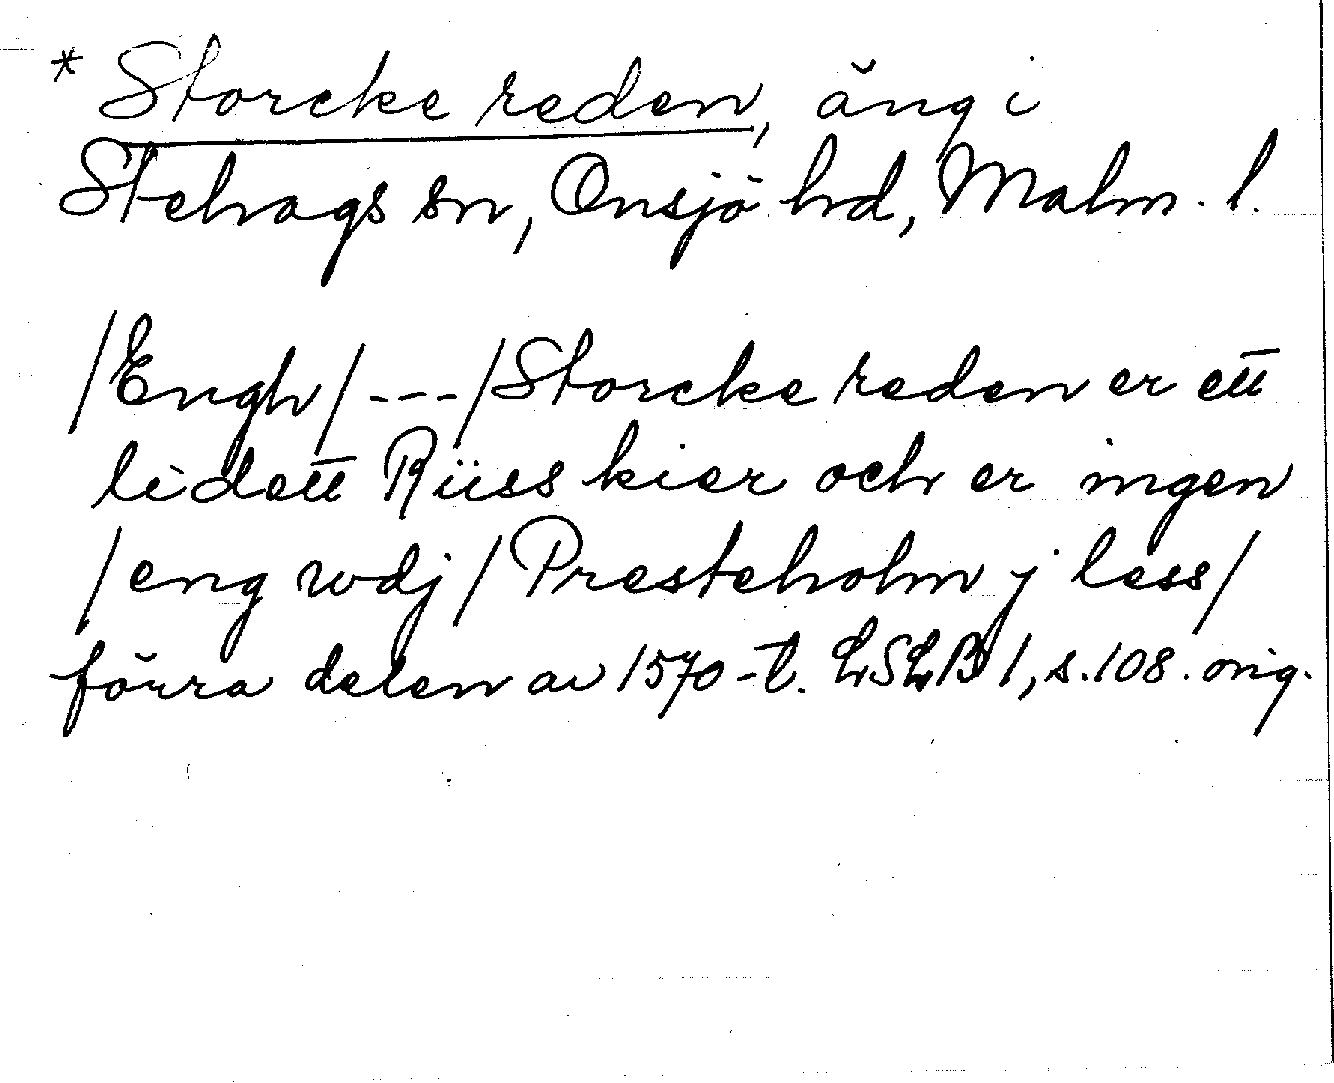 * Storcke reden, äng i
Stehags sn, Onsjö hd, Malm. l.
/Engh/ --- /Storcke reden er ett
lidett Rüsskier och er ingen
/eng wdj/ Presteholm j less/
förra delen av 1570-t. LSLB 1, s. 108. orig.